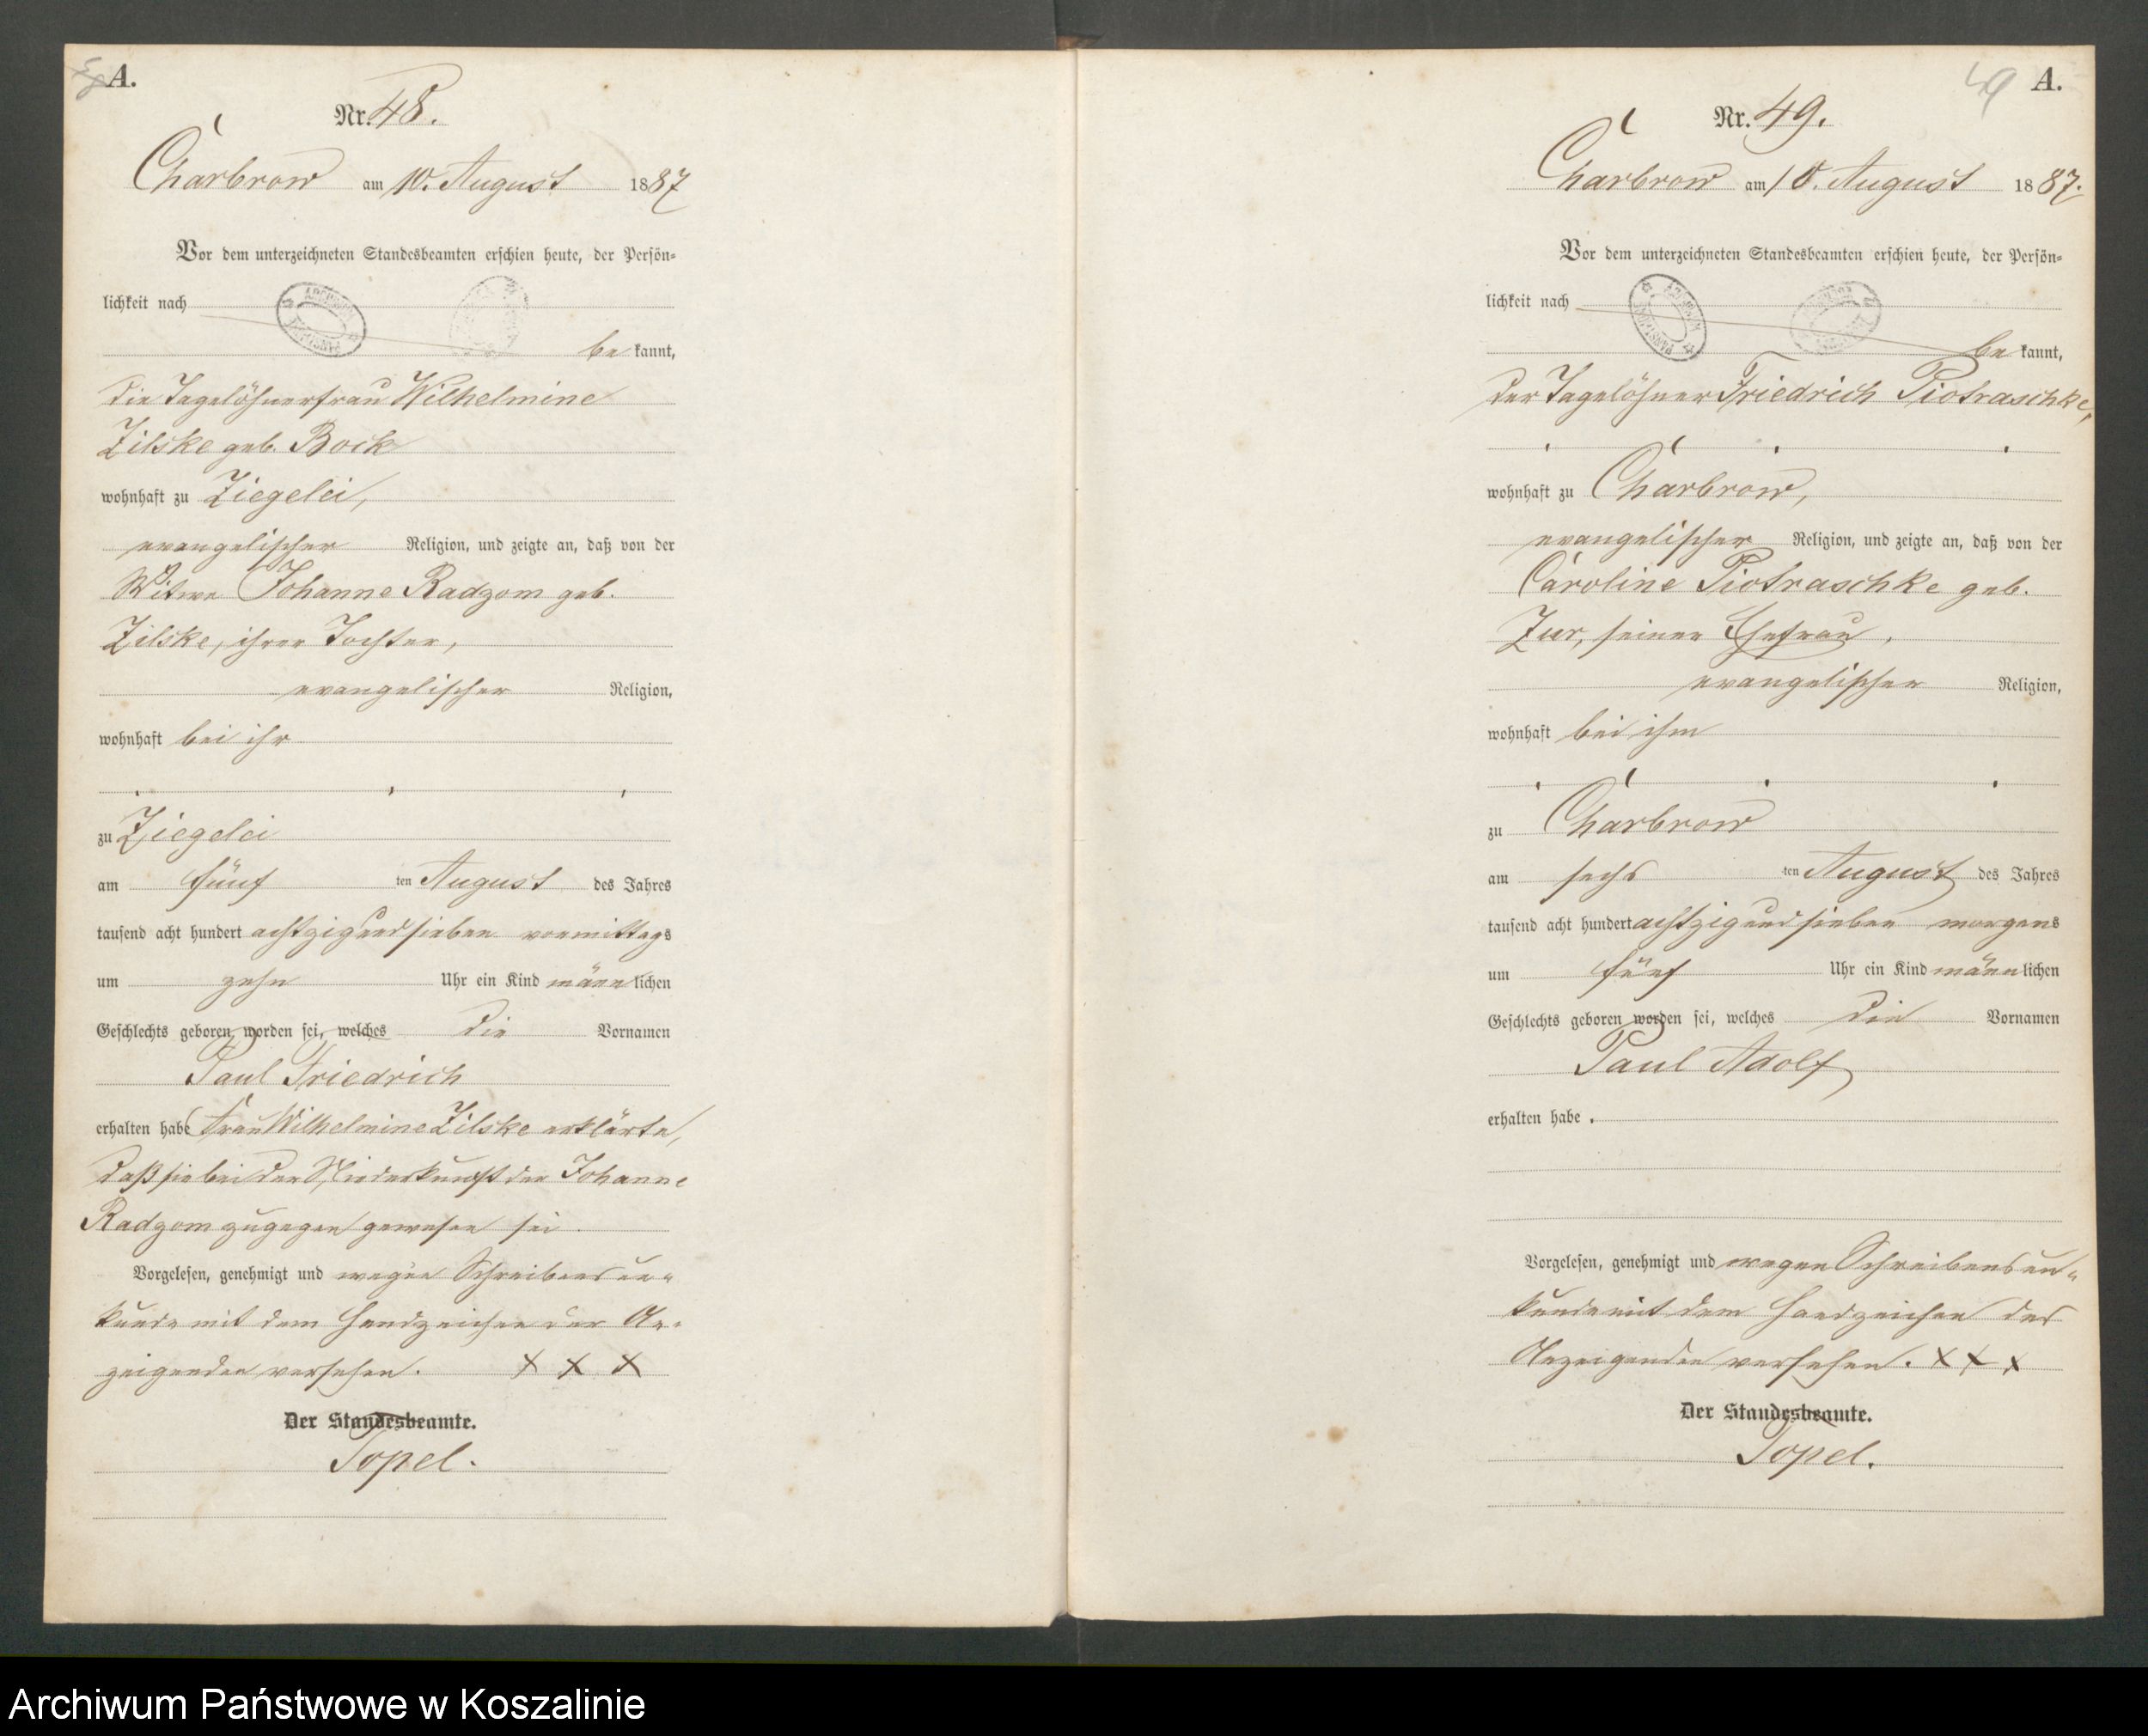 A.
Nr. 48.
Charbrow am 10. August 1887
Vor dem unterzeichneten Standesbeamten erschien heute, der Persön-
lichkeit nach
be kannt,
die Tagelöhnerfrau Wilhelmine
Zilske geb. Bock
wohnhaft zu Ziegelei,
evangelischer Religion, und zeigte an, daß von der
Witwe Johanne Radzom geb.
Zilske, ihrer Tochter,
evangelischer Religion,
wohnhaft bei ihr
zu Ziegelei
am fünf ten August des Jahres
tausend acht hundert achtzig und sieben vormittags
um zehn Uhr ein Kind männlichen
Geschlechts geboren worden sei, welches die Vornamen
Paul Friedrich
erhalten habe Frau Wilhelmine Zilske erklärte,
daß sie bei der Niederkunft der Johanne
Radzom zugegen gewesen sei.
Vorgelesen, genehmigt und wegen Schreibensun-
kunde mit dem Handzeichen der An-
zeigenden versehen. X X X
Der Standesbeamte.
Topel.
49 A.
Nr. 49.
Charbrow am 10. August 1887.
Vor dem unterzeichneten Standesbeamten erschien heute, der Persön-
lichkeit nach
be kannt,
der Tagelöhner Friedrich Piotraschke,
wohnhaft zu Charbrow,
evangelischer Religion, und zeigte an, daß von der
Caroline Piotraschke geb.
Zur, seiner Ehefrau,
evangelischer Religion,
wohnhaft bei ihm
zu Charbrow
am sechs ten August des Jahres
tausend acht hundert achtzig und sieben morgens
um fünf Uhr ein Kind männlichen
Geschlechts geboren worden sei, welches die Vornamen
Paul Adolf
erhalten habe.
Vorgelesen, genehmigt und wegen Schreibensun-
kunde mit dem Handzeichen des
Anzeigenden versehen. X X X
Der Standesbeamte.
Topel.
Archiwum Państwowe w Koszalinie